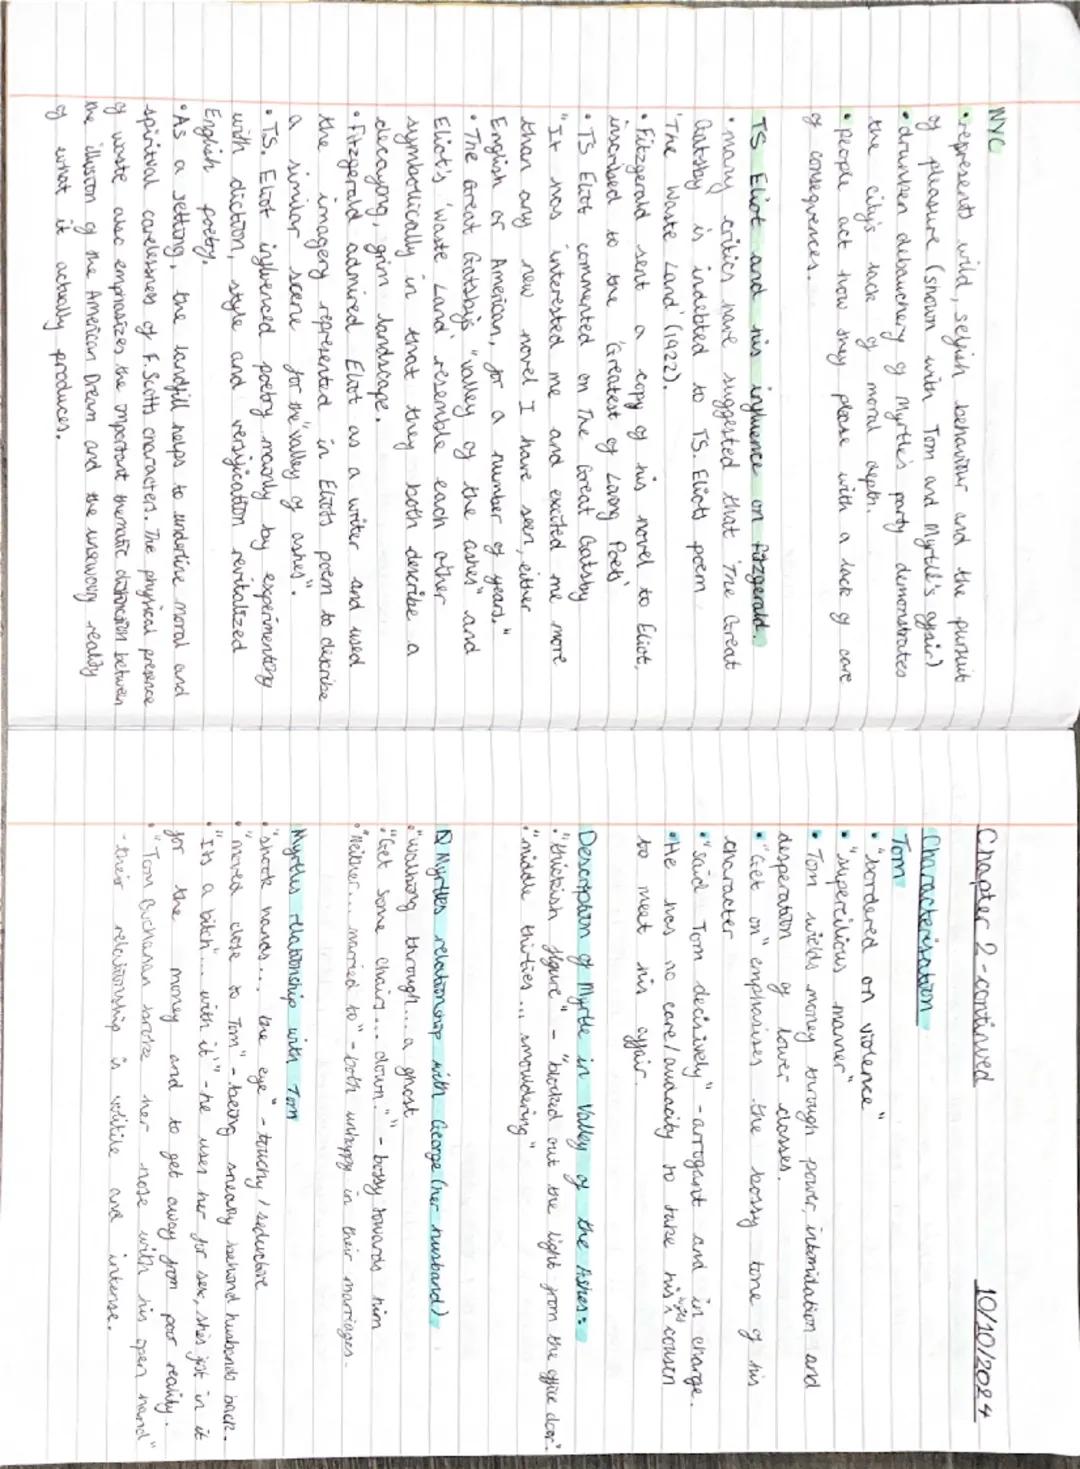 NYC
• represents wild, selfish behaviour and the pursuit
of pleasure (shown with Tom and Myrtle's affair)
• drunken debauchery of Myrtle's party demonstrates
the city's lack of moral depth.
• people act how they please with a lack of care
of consequences.
TS Eliot and his influence on Fitzgerald.
• many critics have suggested that 'The Great
Gatsby is indebted to TS. Eliot's poem
'The Waste Land' (1922).
• Fitzgerald sent a copy of his novel to Eliot,
inscribed to the 'Greatest of Living Poets'
• TS Eliot commented on The Great Gatsby
"It has interested me and excited me more
than any new novel I have seen, either
English or American, for a number of years."
• The Great Gatsby's "valley of the ashes" and
Eliot's 'Waste Land' resemble each other
symbolically in that they both describe a
decaying, grim landscape.
• Fitzgerald admired Eliot as a writer and used
the imagery represented in Eliots poem to describe
a similar scene for the "valley of ashes".
• TS. Eliot influenced poetry mainly by experimenting
with diction, style and versification revitalized
English poetry.
• As a setting, the landfill helps to underline moral and
spiritual carelessness of F. Scotts characters. The physical presence
of waste also emphasizes the important thematic distinction between
the illusion of the American Dream and the unwavy reality
of what it actually produces.
Chapter 2 - continued 10/10/2024
Characterisation
Tom
• "bordered on violence"
• "supercilious manner"
• Tom wields money through power, intimidation and
desperation of lower classes.
• "Get on" emphasises the bossy tone of his
character
• "said Tom decisively" - arrogant and in charge.
• He has no care/audacity to take his wifes cousin
to meet his affair.
Description of Myrtle in Valley of the Ashes:
• "thickish figure" - "blocked out the light from the office door".
• "middle thirties... smouldering"
Q Myrtles relationship with George (her husband)
• "walking through... a ghost
• "Get some chairs... down." - bossy towards him
• "Neither... married to" - both unhappy in their marriages.
Myrtles relationship with Tom
• "shook hands... the eye" - touchy / seductive
• "moved close to Tom" - being sneaky behind husbands back.
• "It's a bitch"... with it" - he uses her for sex, shes just in it
for the money and to get away from poor reality.
• "Tom Buchanan broke her nose with his open hand"
- their relationship is volitile and intense.